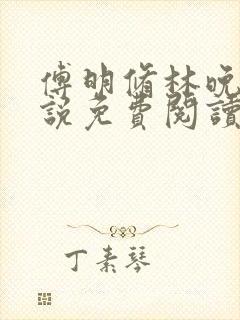 傅明脩林晚
說免費閱讀
丁素琴